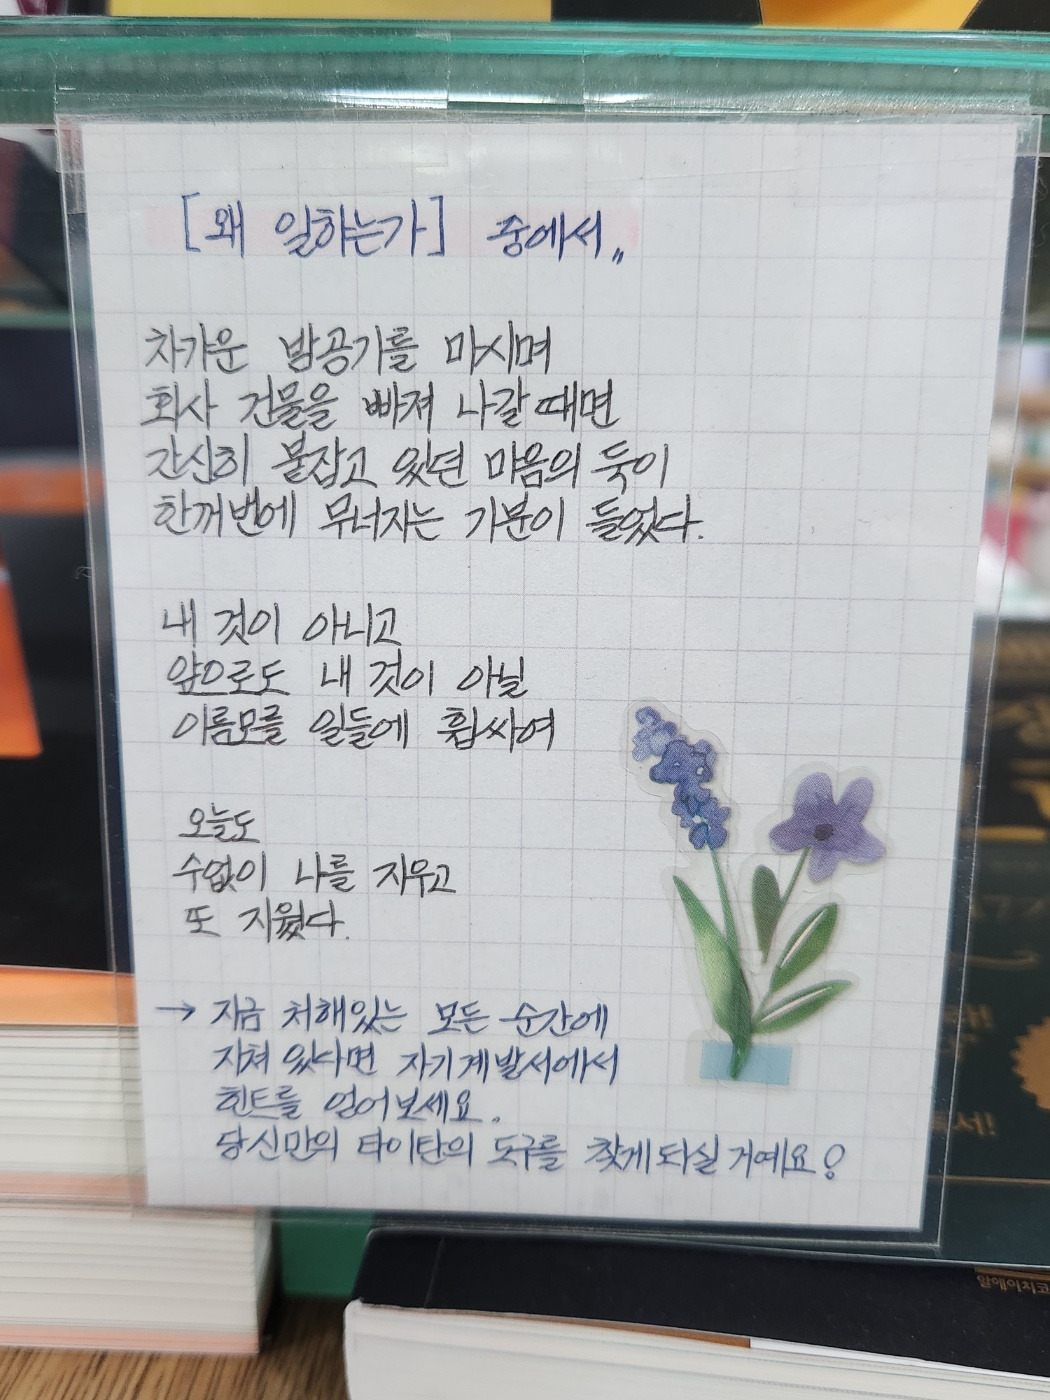 [왜 일하는가] 중에서 〃
차가운 밤공기를 마시며
회사 건물을 빠져 나갈 때면
간신히 붙잡고 있던 마음의 둑이
한꺼번에 무너지는 기분이 들었다.
내 것이 아니고
앞으로도 내 것이 아닐
이름모를 일들에 휩싸여
오늘도
수없이 나를 지우고
또 지웠다.
→ 지금 처해있는 모든 순간에
지쳐 있다면 자기계발서에서
힌트를 얻어보세요.
당신만의 타이탄의 도구를 찾게 되실 거예요!
알에이치코